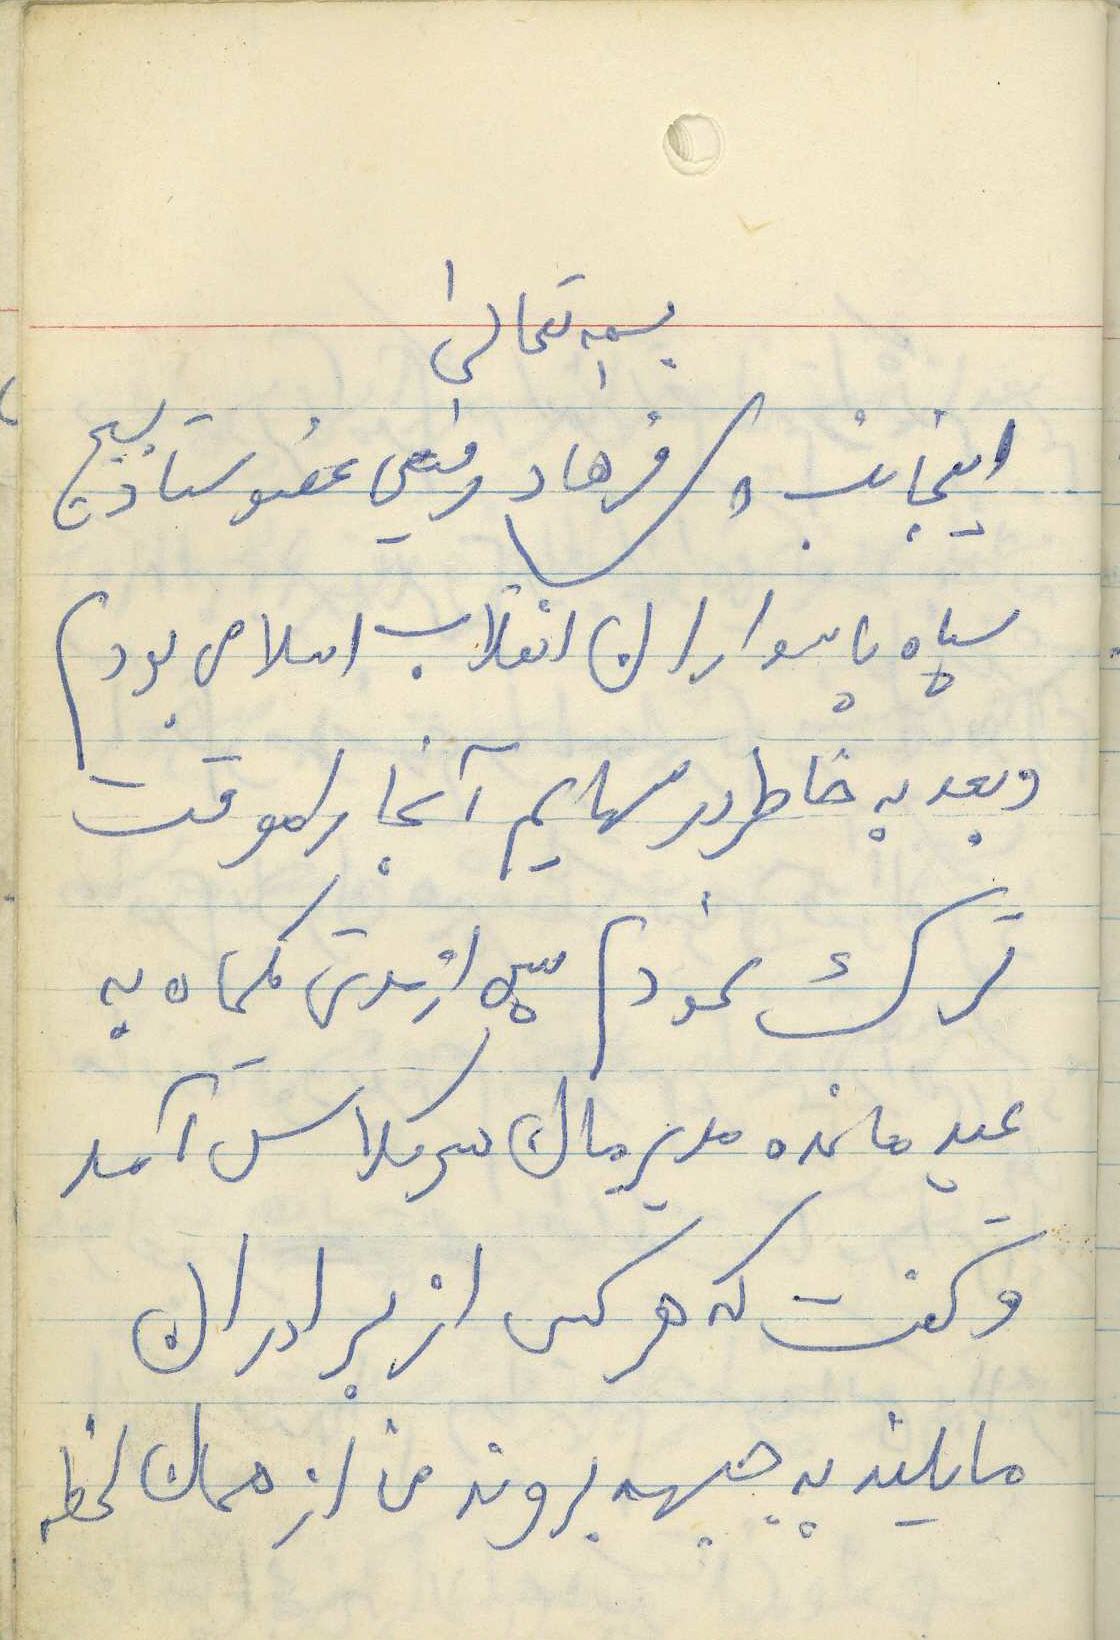 بسمه تعالی
اینجانب فرهاد رفیعی عضو ستاد بسیج
سپاه پاسداران انقلاب اسلامی بودم
و بعد به خاطر درسهایم آنجا را موقت
ترک نمودم پس از مدتی یکماه به
عید مانده مدیرمان سر کلاس آمد
و گفت که هر کس از برادران
مایلند به جبهه بروند من از همان لحظه